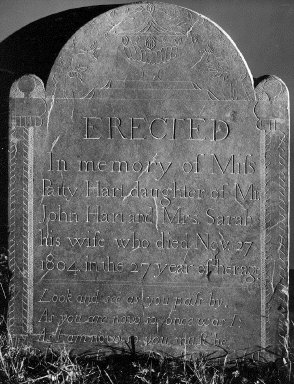 ERECTED
In memory of Miſs
Patty Hart daughter of Mr
John Hart and Mrs Sarah
his wife, who died Nov. 27
1804, in the 27 year of her age
Look and see as you paſs by,
As you are now so once was I;
As I am now so you muſt be